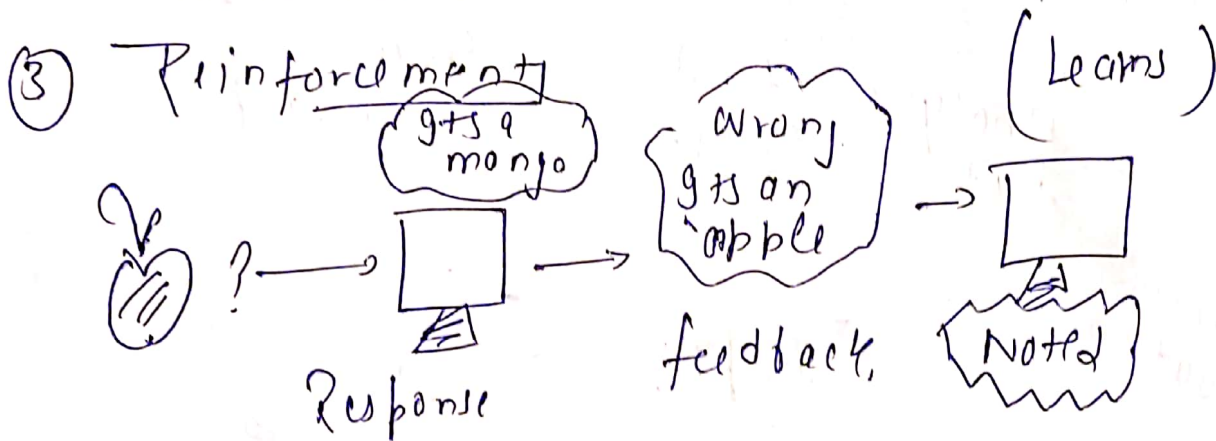 ③ Reinforcement
(Learns)
gts a
mango
wrong
gts an
apple
?
Response
feedback.
Noted